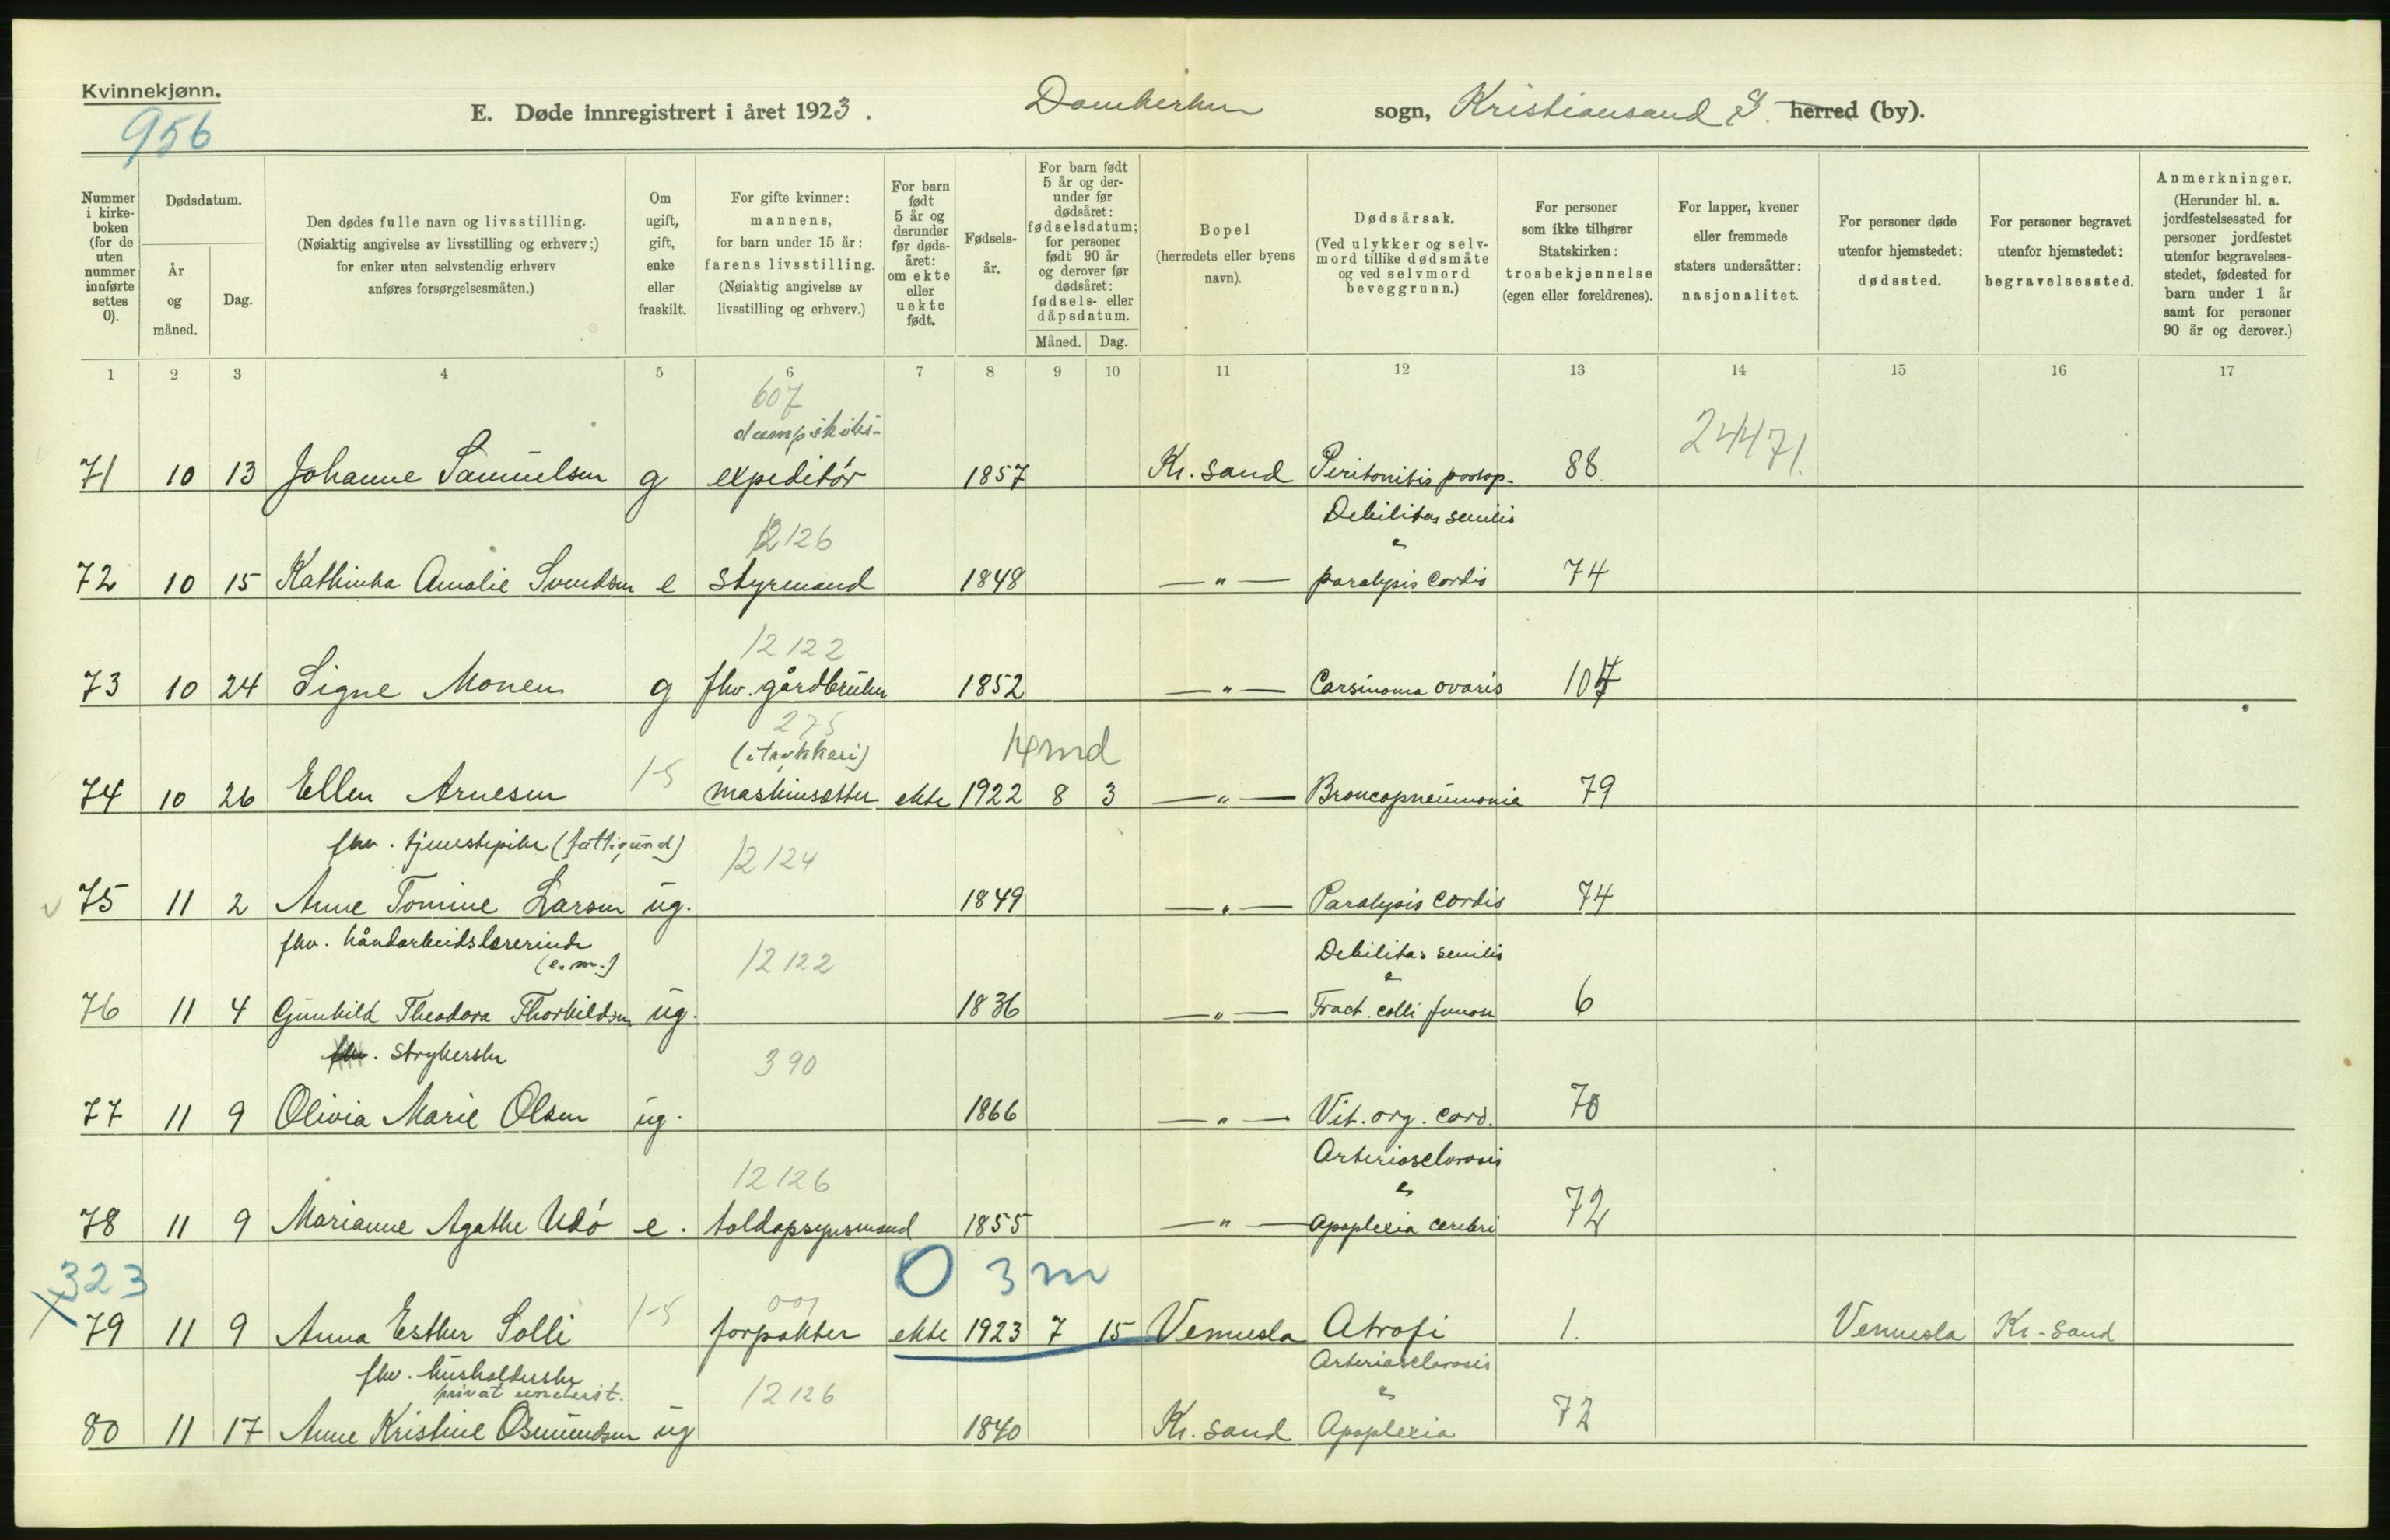 Kvinnekjønn.
956
E. Døde innregistrert i året 1923. Domkirken sogn, Kristiansand S. herred (by).
Nummer i kirkeboken (for de uten nummer innførte settes 0).
Dødsdatum.
År og måned.
Dag.
Den dødes fulle navn og livsstilling.
(Nøiaktig angivelse av livsstilling og erhverv;)
for enker uten selvstendig erhverv
anføres forsørgelsesmåten.)
Om ugift, gift, enke eller fraskilt.
For gifte kvinner:
mannens,
for barn under 15 år:
farens livsstilling.
(Nøiaktig angivelse av
livsstilling og erhverv.)
For barn født 5 år og derunder før dødsåret: om ekte eller uekte født.
Fødselsår.
For barn født
5 år og der-
under før
dødsåret:
fødselsdatum;
for personer
født 90 år
og derover før
dødsåret:
fødsels- eller
dåpsdatum.
Måned. Dag.
Bopel
(herredets eller byens
navn).
Dødsårsak.
(Ved ulykker og selv-
mord tillike dødsmåte
og ved selvmord
beveggrunn.)
For personer
som ikke tilhører
Statskirken:
trosbekjennelse
(egen eller foreldrenes).
For lapper, kvener
eller fremmede
staters undersåtter:
nasjonalitet.
For personer døde
utenfor hjemstedet:
dødssted.
For personer begravet
utenfor hjemstedet:
begravelsessted.
Anmerkninger.
(Herunder bl. a.
jordfestelsessted for
personer jordfestet
utenfor begravelses-
stedet, fødested for
barn under 1 år
samt for personer
90 år og derover.)
1 2 3 4 5 6 7 8 9 10 11 12 13 14 15 16 17
607
dampskibs-
24471.
71 10 13 Johanne Samuelsen g expeditör 1857 Kr. sand Peritonitis postop. 88
12126
Debilitas senilis
&
72 10 15 Kathinka Amalie Svendsen e styrmand 1848 —"— paralysis cordis 74
12122
73 10 24 Signe Monen g fhv. gårdbruker 1852 —"— Carsinoma ovaris 107
275
(i trykkeri)
14md
74 10 26 Ellen Arnesen 1-5 maskinsetter ekte 1922 8 3 —"— Broncopneumonia 79
fhv. tjenestepike (fattigund)
12124
75 11 2 Anne Tomine Larsen ug. 1849 —"— Paralysis cordis 74
fhv. håndarbeidslærerinde
(e.m.)
12122
Debilitas senilis
&
76 11 4 Gunhild Theodora Thorkildsen ug. 1836 —"— Fract. colli femoris 6
fhv. strykerske
390
77 11 9 Olivia Marie Olsen ug. 1866 —"— Vit. org. cord. 70
12126
Arteriosclerosis
&
78 11 9 Marianne Agathe Udö e. toldopsynsmand 1855 —"— apoplexia cerebri 72
323
001
0 3m
79 11 9 Anna Esther Solli 1-5 forpakter ekte 1923 7 15 Vennesla Atrofi 1. Vennesla Kr. sand
fhv. husholderske
privat underst.
12126
Arteriosclerosis
&
80 11 17 Anne Kristine Osmundsen ug 1840 Kr. sand Apoplexia 72